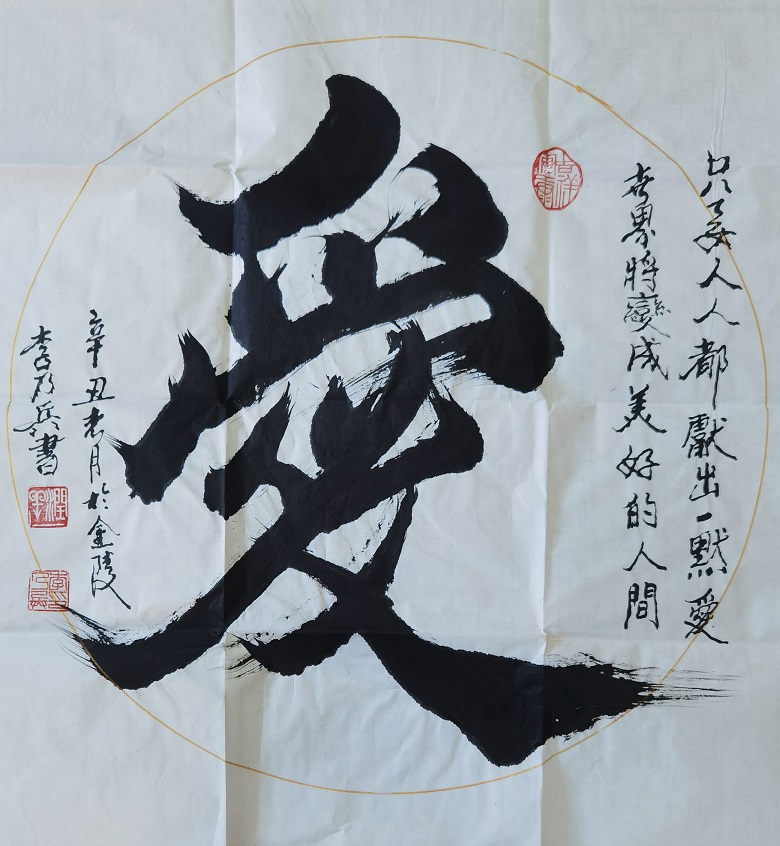 只要人人都獻出一點愛
世界將變成美好的人間
愛
辛丑月於金陵
李乃兵書